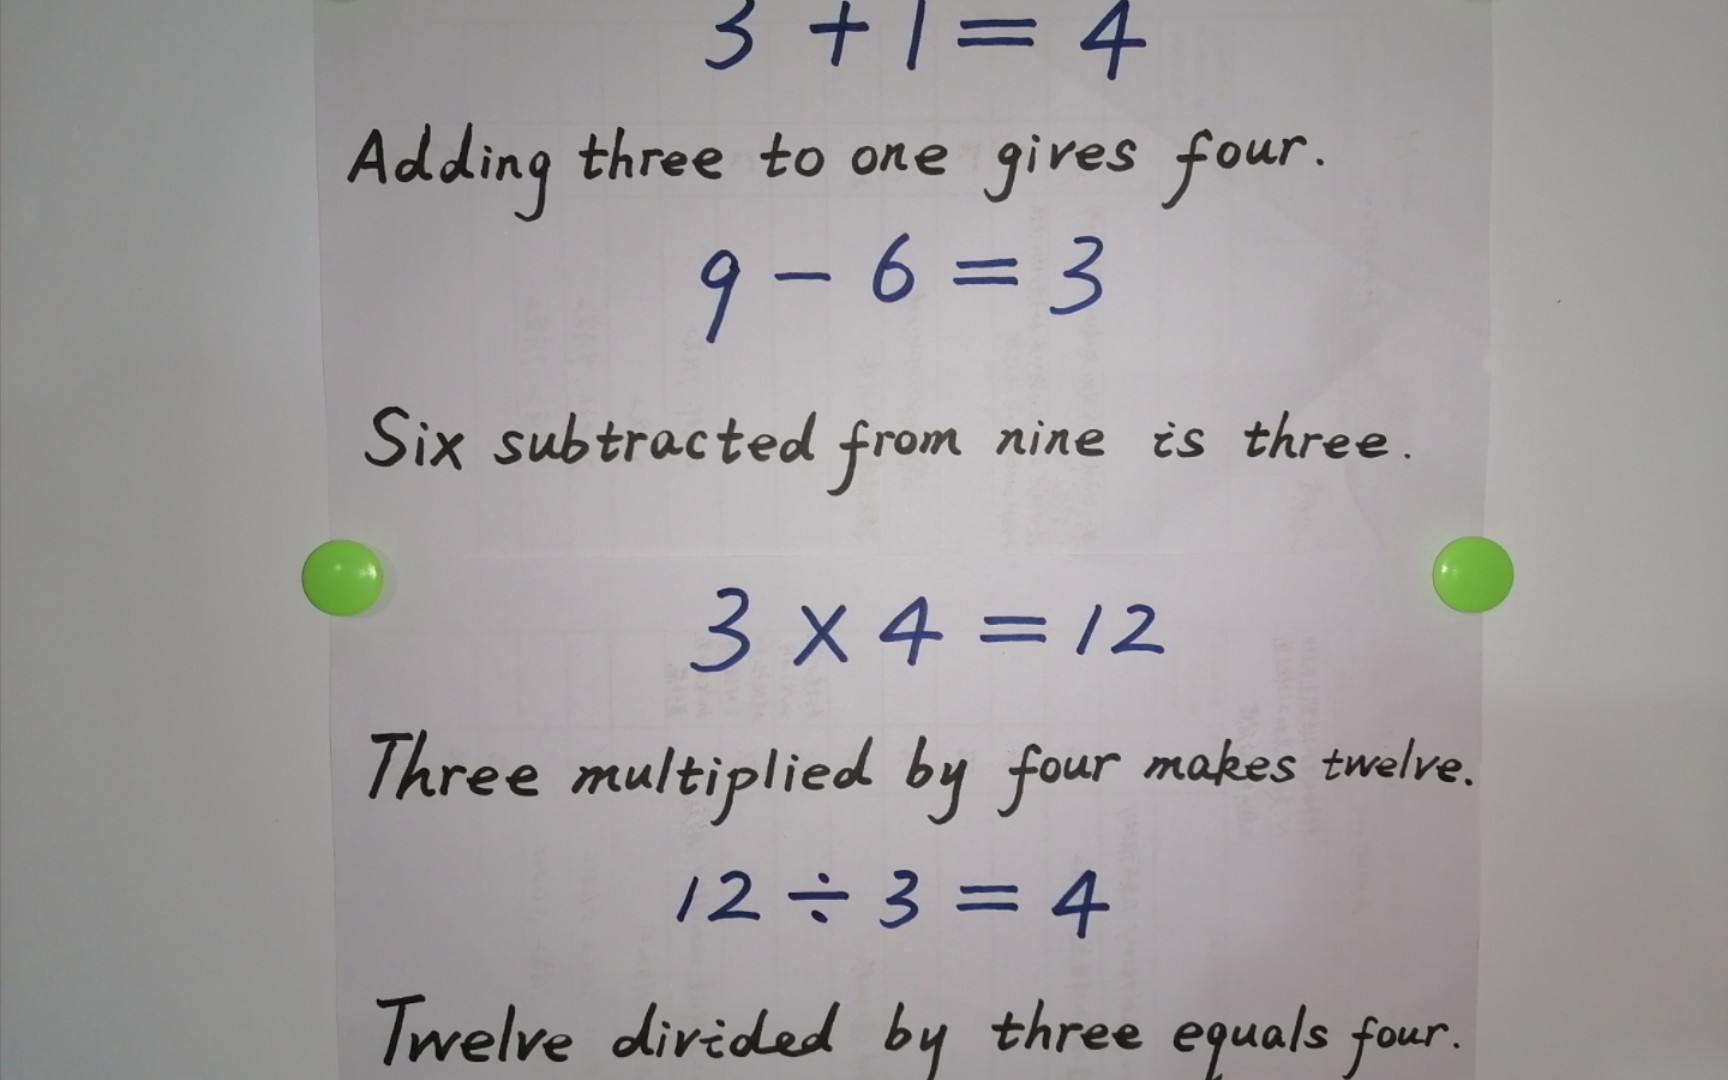 3 + 1 = 4
Adding three to one gives four.
9 - 6 = 3
Six subtracted from nine is three.
3 × 4 = 12
Three multiplied by four makes twelve.
12 ÷ 3 = 4
Twelve divided by three equals four.